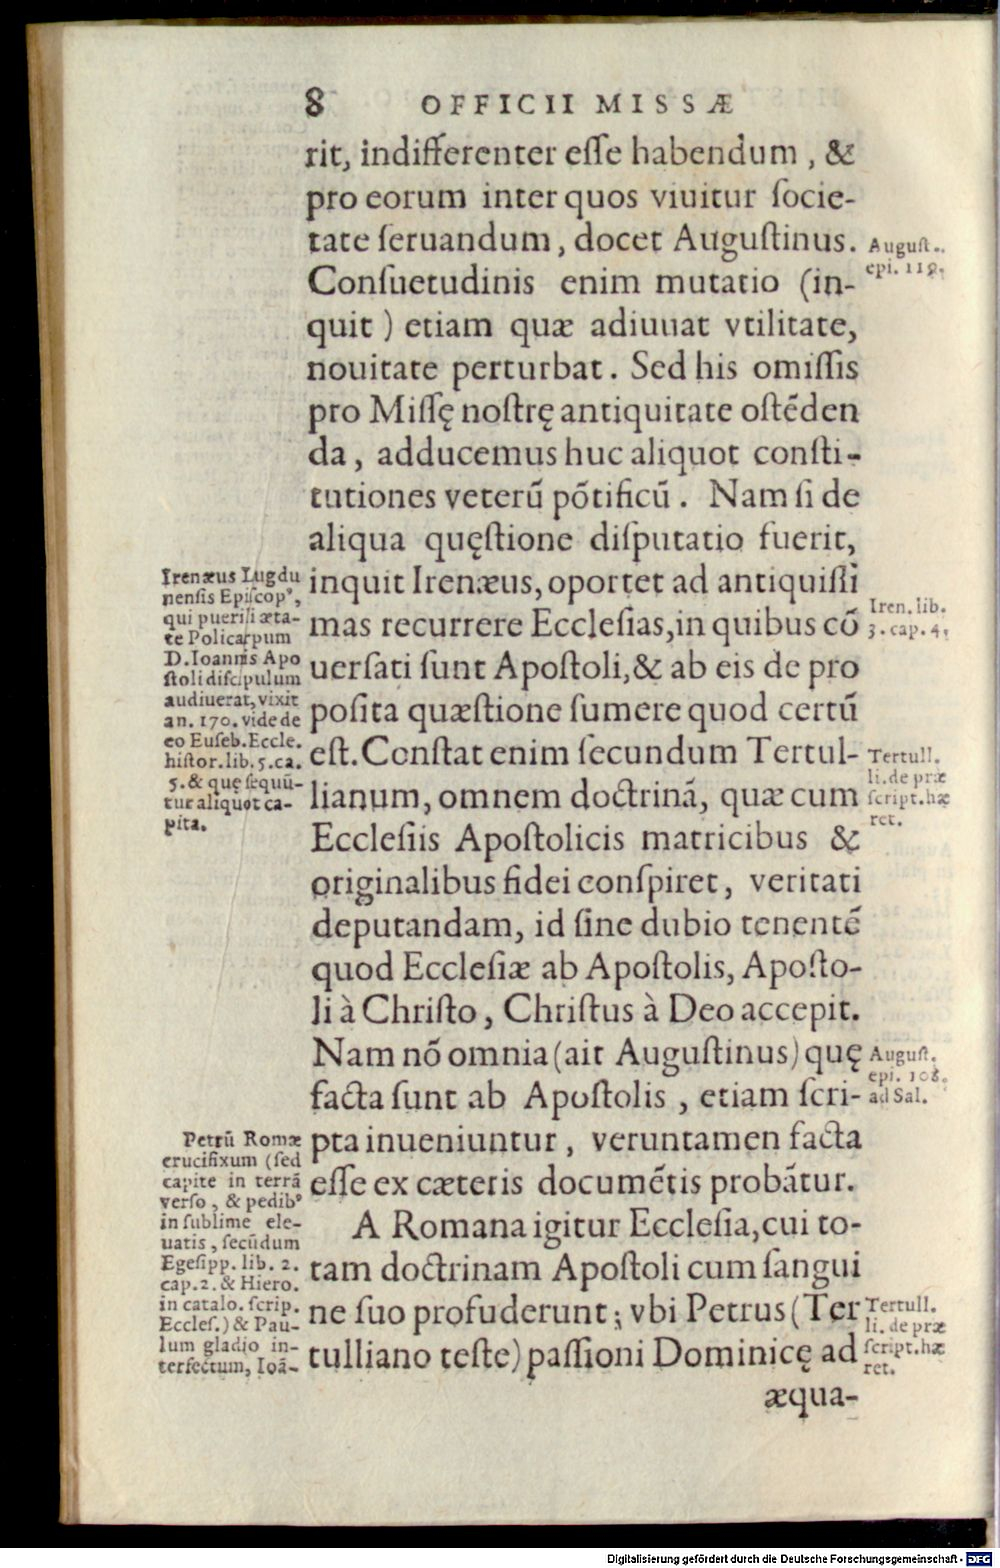 8 OFFICII MISSÆ
rit, indifferenter eſſe habendum, &
pro eorum inter quos viuitur ſocie-
tate ſeruandum, docet Auguſtinus.
Conſuetudinis enim mutatio (in-
quit) etiam quæ adiuuat vtilitate,
nouitate perturbat. Sed his omiſſis
pro Miſſę noſtrę antiquitate oſtẽden
da, adducemus huc aliquot conſti-
tutiones veterũ põtificũ. Nam ſi de
aliqua quęſtione diſputatio fuerit,
inquit Irenæus, oportet ad antiquiſſi
mas recurrere Eccleſias, in quibus cõ
uerſati ſunt Apoſtoli, & ab eis de pro
poſita quæſtione ſumere quod certũ
eſt. Conſtat enim ſecundum Tertul-
lianum, omnem doctrinã, quæ cum
Eccleſiis Apoſtolicis matricibus &
originalibus fidei conſpiret, veritati
deputandam, id ſine dubio tenentẽ
quod Eccleſiæ ab Apoſtolis, Apoſto-
li à Chriſto, Chriſtus à Deo accepit.
Nam nõ omnia (ait Auguſtinus) quę
facta ſunt ab Apoſtolis, etiam ſcri-
pta inueniuntur, veruntamen facta
eſſe ex cæteris documẽtis probãtur.
A Romana igitur Eccleſia, cui to-
tam doctrinam Apoſtoli cum ſangui
ne ſuo profuderunt; vbi Petrus (Ter
tulliano teſte) paſſioni Dominicę ad
æqua-
Auguſt.
epi. 119.
Irenæus Lugdu
nenſis Epiſcopꝰ,
qui puerili æta-
te Policarpum
D. Ioannis Apo
ſtoli diſcipulum
audiuerat, vixit
an. 170. vide de
eo Euſeb. Eccle.
hiſtor. lib. 5. ca.
5. & quę ſequũ-
tur aliquot ca-
pita.
Iren. lib.
3. cap. 4.
Tertull.
li. de præ
ſcript. hæ
ret.
Auguſt.
epi. 108.
ad Sal.
Petrũ Romæ
crucifixum (ſed
capite in terrã
verſo, & pedibꝰ
in ſublime ele-
uatis, ſecũdum
Egeſipp. lib. 2.
cap. 2. & Hiero.
in catalo. ſcrip.
Eccleſ.) & Pau-
lum gladio in-
terfectum, Ioã-
Tertull.
li. de præ
ſcript. hæ
ret.
Digitalisierung gefördert durch die Deutsche Forschungsgemeinschaft - DFG